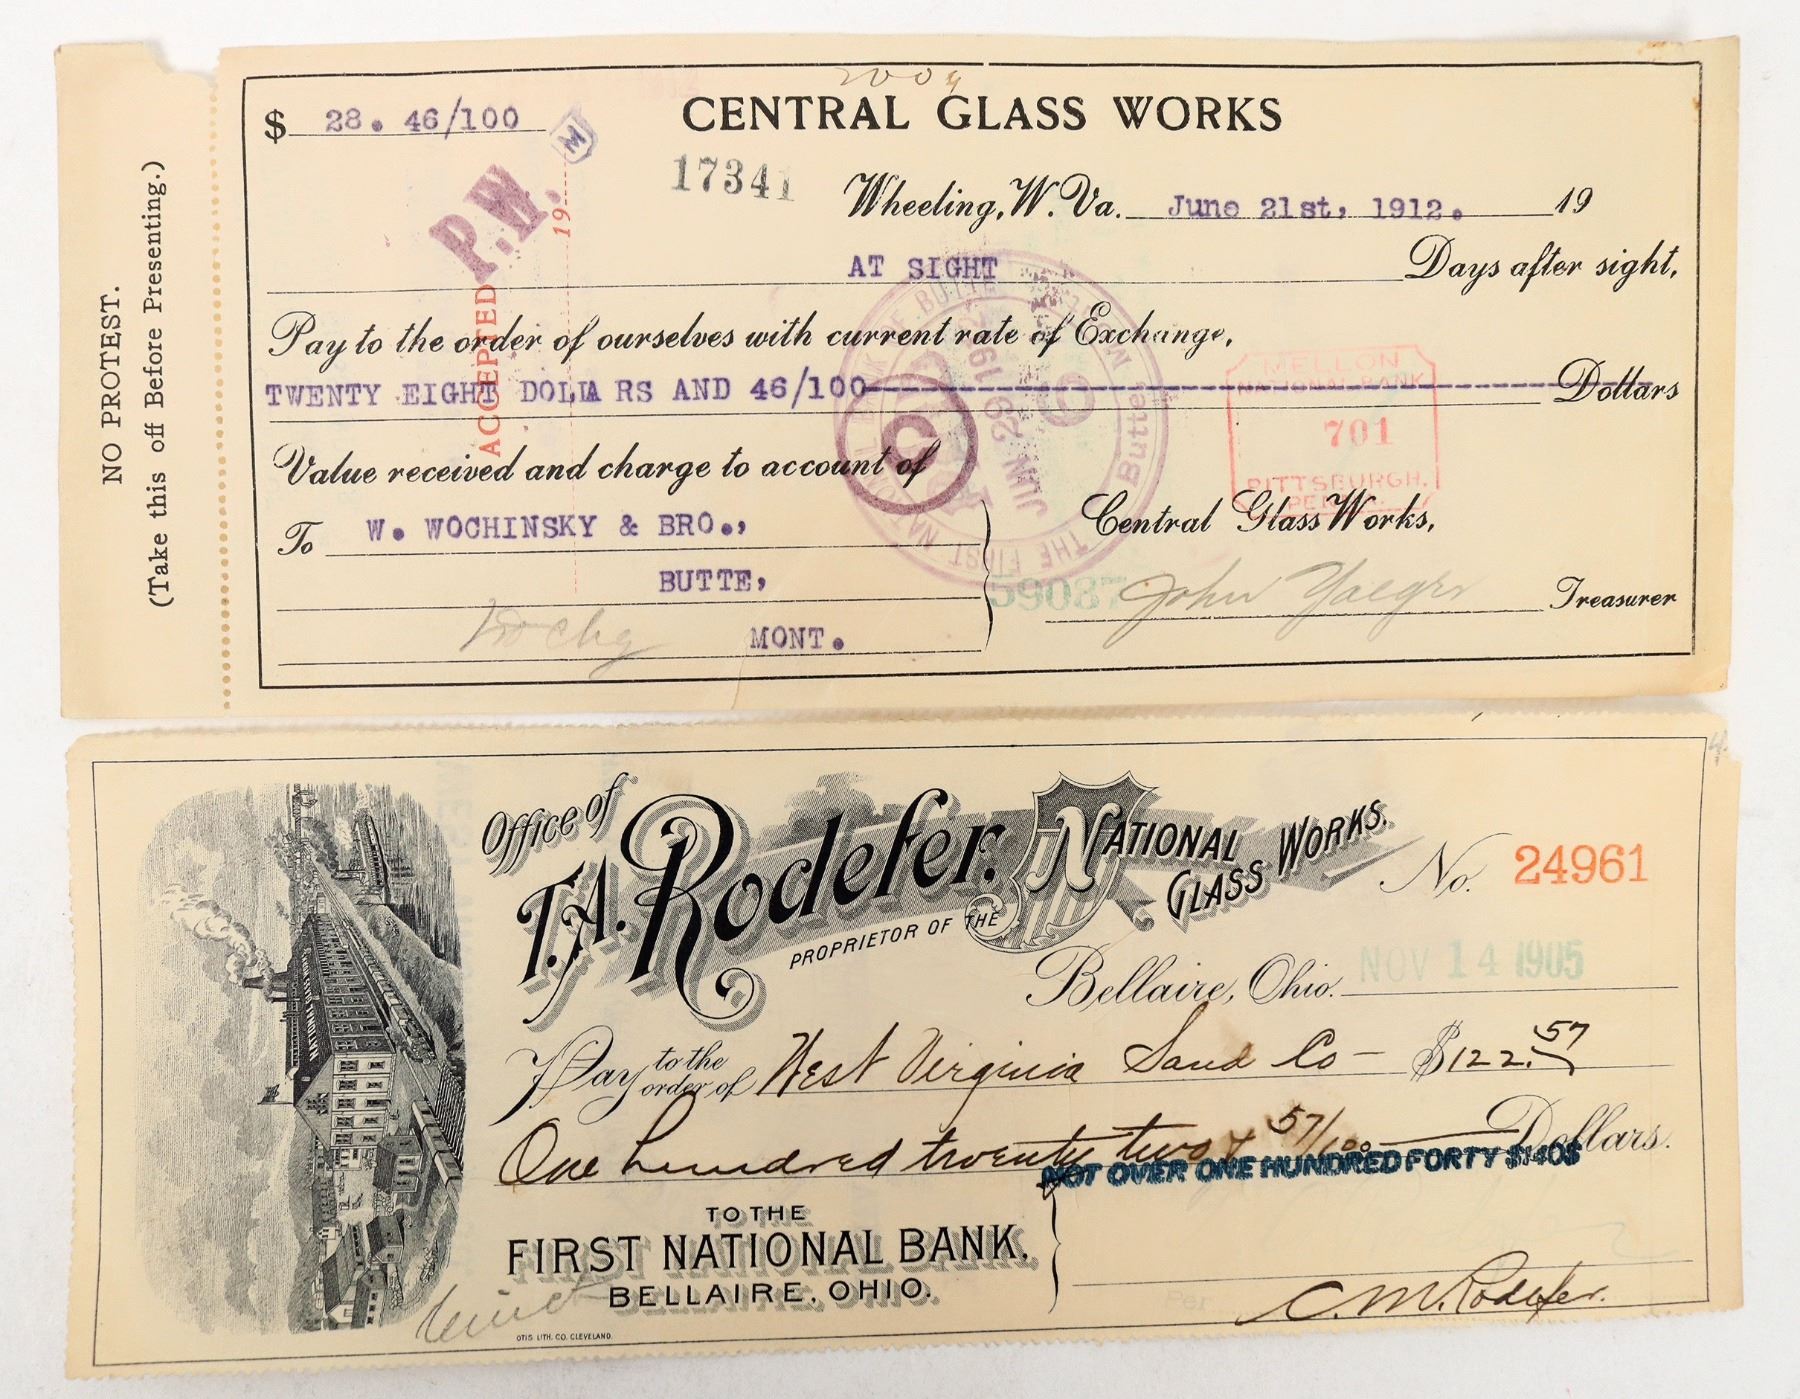 NO PROTEST.
(Take this off Before Presenting.)
$ 28. 46/100
M
CENTRAL GLASS WORKS
17341
P.W.
ACCEPTED 19
Wheeling, W. Va. June 21st, 1912. 19
AT SIGHT Days after sight,
Pay to the order of ourselves with current rate of Exchange,
TWENTY EIGHT DOLLA RS AND 46/100 Dollars
MELLON
NATIONAL BANK
701
PITTSBURGH,
THE FIRST NATIONAL BANK OF BUTTE
JUN 29 1912
Butte,
Value received and charge to account of
To W. WOCHINSKY & BRO.,
BUTTE,
MONT.
Central Glass Works,
59087
John Yaeger Treasurer
Office of
T.A. Rodefer.
PROPRIETOR OF THE
NATIONAL GLASS WORKS.
No. 24961
Bellaire, Ohio. NOV 14 1905
Pay to the order of West Virginia Sand Co — $122.57
One hundred twenty two & 57/100 Dollars.
NOT OVER ONE HUNDRED FORTY $140$
TO THE
FIRST NATIONAL BANK,
BELLAIRE, OHIO.
Per
C. M. Rodefer.
OTIS LITH. CO. CLEVELAND.